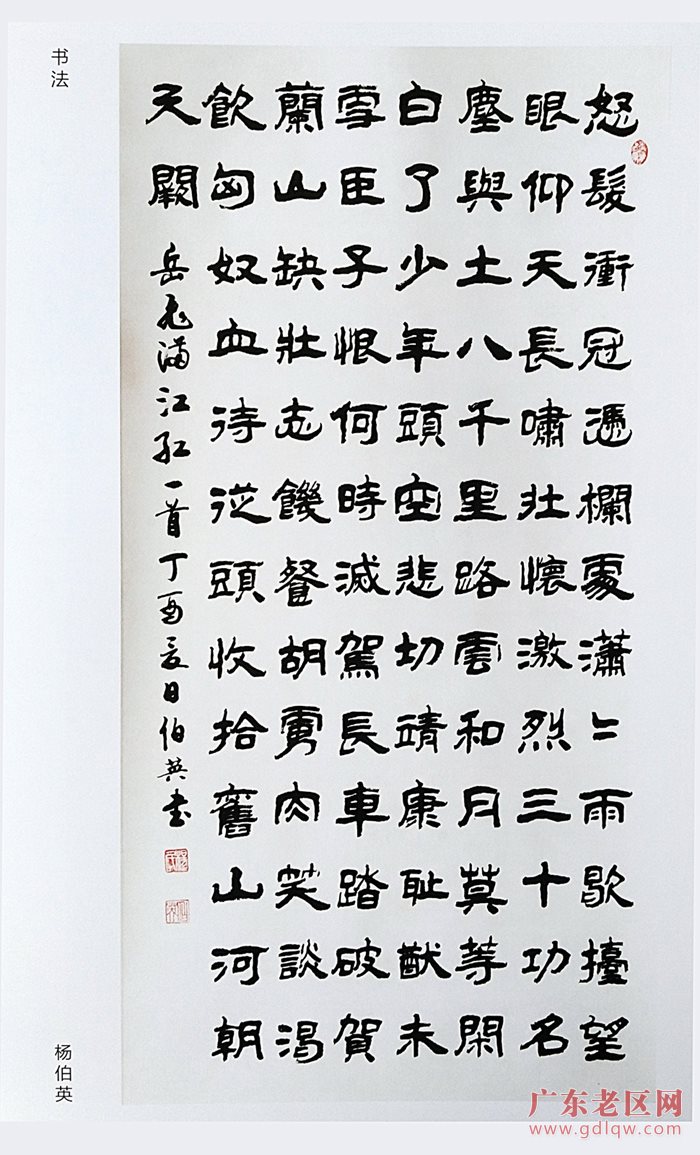 书法
怒髮衝冠憑欄處瀟々雨歇擡望
眼仰天長嘯壯懷激烈三十功名
塵與土八千里路雲和月莫等閑
白了少年頭空悲切靖康耻猶未
雪臣子恨何時滅駕長車踏破賀
蘭山缺壯志饑餐胡虜肉笑談渴
飲匈奴血待從頭收拾舊山河朝
天闕
岳飛滿江紅一首丁酉夏日伯英書
杨伯英
广东老区网
www.gdlqw.com